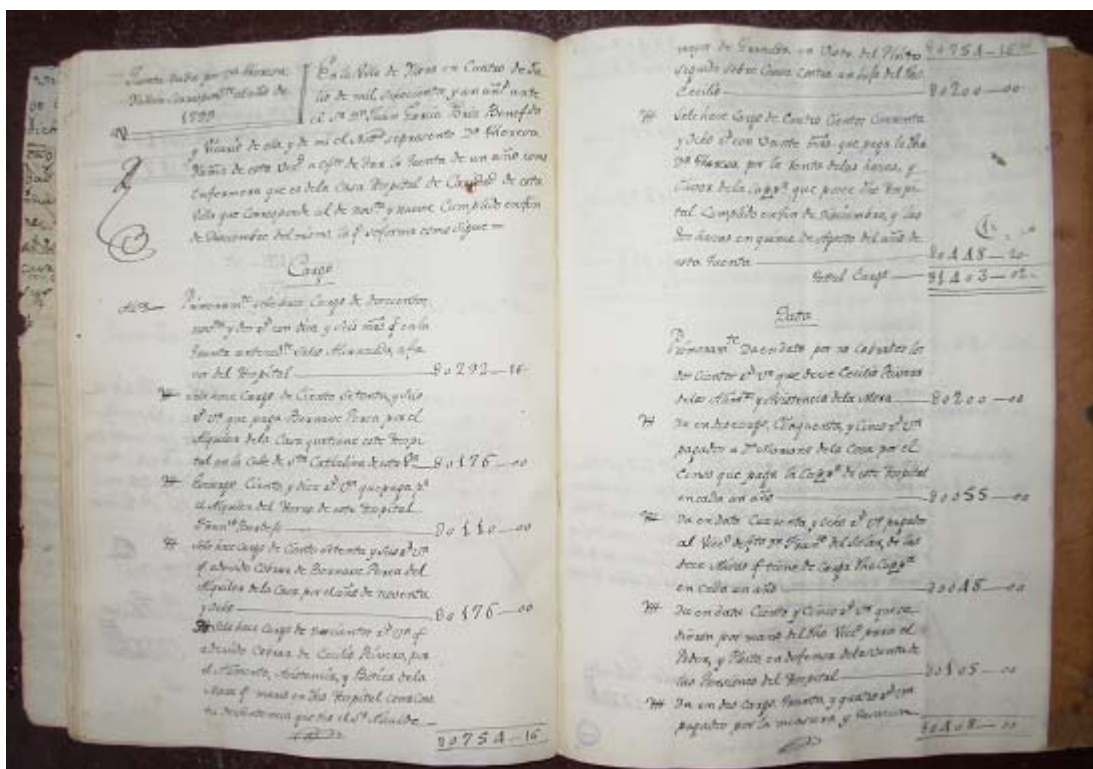 Cuenta dada por Dª Theresa
Correspond.te al año de
1799
En la Villa de en Cuatro de Ju
lio de mil, ochocientos, y un añs ante
el Sr Dn Juan García Benefdo
y Vicario de ella, y de mi el Nottº se presento Dª Theresa
de esta Vecd a efto de dar la Cuenta de un año como
Enfermera que es de la Casa Hospital de Caridad de esta
Villa que Corresponde al de novta y nueve Cumplido en fin
de Diciembre del mismo, la q se forma como sigue =
Cargo
Primeramte se le hace Cargo de doscientos
novta y dos rs con diez y seis mrs q en la
Cuenta antecedte salio Alcanzada, a fa
vor del Hospital — 80292—16
se le hace Cargo de Ciento Setenta, y seis
rs vn que paga Bernave Perea por el
Alquiler de la Casa que tiene este Hospi
tal en la Calle de Sta Cathalina de esta Va — 80176—00
Es cargo Ciento, y diez rs vn que paga pr
el Alquiler del Horno de este Hospital
— 80110—00
Se le hace Cargo de Ciento setenta y seis rs vn
q a devido Cobrar de Bernave Perea del
Alquiler de la Casa por el año de noventa
y ocho — 80176—00
Se le hace Cargo de rs vn q
a devido Cobrar de Cecilio Rivero, por
el Alimento, Asistencia, y Botica de la
Moza q murió en dho Hospital
que dio el Sr Alcalde
80754—16
mayor de Granada, en Vista del Pleito — 80754—16
seguido sobre Causa contra un hijo del dho
Cecilio — 80200—00
Se le hace Cargo de Cuatro Cientos Cuarenta
y Ocho rs con Veinte mrs que paga la dha
Dª Theresa, por la Renta de las hazas, y
Casas de la Cappa que posee dho Hospi
tal Cumplido en fin de Diciembre, y las
dos hazas en quince de Agosto del año de
esta Cuenta — 80448—20
Total Cargo — 81403—02
Data
Primeramte Da en data por no Cobrados los
dos Cientos rs vn que deve Cecilio Rivero
de los Alimtos y Asistencia de la Moza — 80200—00
Da en descargo, Cinquenta, y Cinco rs vn
pagados a Dn Mariano de la Cosa por el
Censo que paga la Cappa de este Hospital
en cada un año — 80055—00
Da en data Cuarenta, y ocho rs vn pagados
al Vico de esta Dn Franco del Solar, de las
doce Misas q tiene de Carga dha Cappa
en cada un año — 80048—00
Da en data Ciento y Cinco rs vn que se
dieron por mano del dho Vico para el
Poder, y Pleito, en defensa de la venta de
las Posesiones del Hospital — 80105—00
Da en des Cargo, y quatro rs vn
pagados por la mensura, y
80408—00